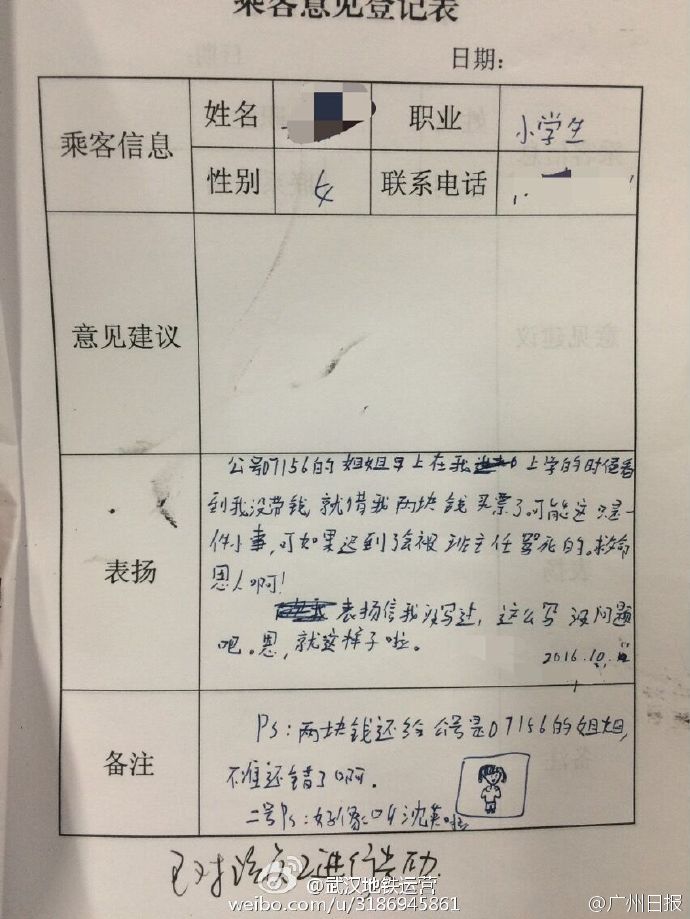 乘客意见登记表
日期：
乘客信息 姓名 职业 小学生
性别 女 联系电话
意见建议
表扬
公号07156的姐姐早上在我 上学的时候看
到我没带钱,就借我两块钱买票了.可能这只是一
件小事,可如果迟到会被班主任骂死的。救命
恩人啊!
表扬信我没写过,这么写没问题
吧。恩,就这样子啦。
2016.10.
备注
Ps:两块钱还给公号是07156的姐姐,
不准还错了啊.
二号Ps:好像叫沈英
@武汉地铁运营
weibo.com/u/3186945861
@广州日报